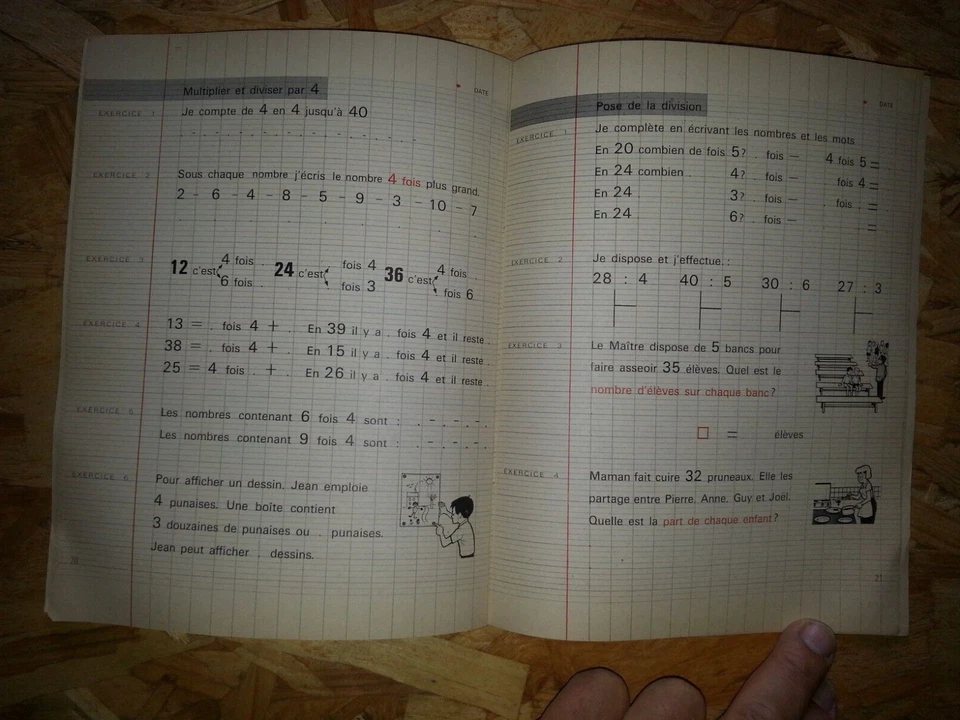 Multiplier et diviser par 4
DATE
EXERCICE 1
Je compte de 4 en 4 jusqu'à 40
. - . - . - . - . - . - . - . - . - .
EXERCICE 2
Sous chaque nombre j'écris le nombre 4 fois plus grand.
2 - 6 - 4 - 8 - 5 - 9 - 3 - 10 - 7
EXERCICE 3
12 c'est 4 fois . 6 fois .
24 c'est . fois 4 . fois 3
36 c'est 4 fois . . fois 6
EXERCICE 4
13 = . fois 4 + . En 39 il y a . fois 4 et il reste .
38 = . fois 4 + . En 15 il y a . fois 4 et il reste .
25 = 4 fois . + . En 26 il y a . fois 4 et il reste .
EXERCICE 5
Les nombres contenant 6 fois 4 sont : . - . - . - .
Les nombres contenant 9 fois 4 sont : . - . - . - .
EXERCICE 6
Pour afficher un dessin, Jean emploie
4 punaises. Une boîte contient
3 douzaines de punaises ou . punaises.
Jean peut afficher . dessins.
20
Pose de la division
DATE
EXERCICE 1
Je complète en écrivant les nombres et les mots
En 20 combien de fois 5? . fois — 4 fois 5 =
En 24 combien . 4? . fois — . fois 4 =
En 24 . 3? . fois — . fois . =
En 24 . 6? . fois — . =
EXERCICE 2
Je dispose et j'effectue. :
28 : 4 40 : 5 30 : 6 27 : 3
EXERCICE 3
Le Maître dispose de 5 bancs pour
faire asseoir 35 élèves. Quel est le
nombre d'élèves sur chaque banc?
□ = élèves
EXERCICE 4
Maman fait cuire 32 pruneaux. Elle les
partage entre Pierre, Anne, Guy et Joël.
Quelle est la part de chaque enfant?
21